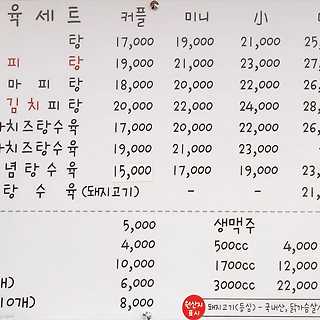 육세트 커플 미니 小
탕 17,000 19,000 21,000 25
피 탕 19,000 21,000 23,000 27
마 피 탕 18,000 20,000 22,000 26
김치피탕 20,000 22,000 24,000 28
치즈탕수육 17,000 20,000 22,000 25,
치즈탕수육 19,000 21,000 23,000
념탕수육 15,000 17,000 19,000 23,
탕 수 육 (돼지고기) - - - 21,
5,000 생맥주
4,000 500cc 4,000
10,000 1700cc 12,000
개) 6,000 3000cc 22,000
10개) 8,000 원산지 표시 돼지고기(등심) - 국내산, 닭가슴살